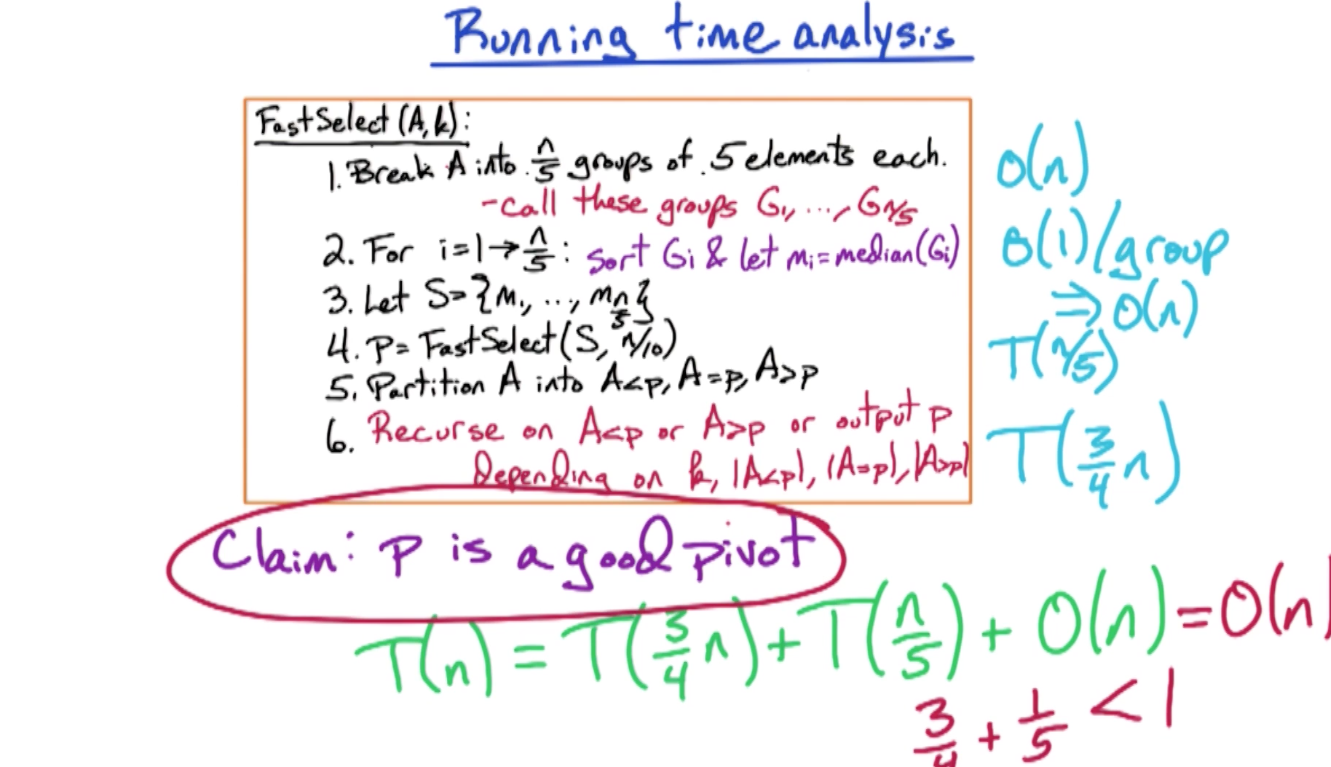 Running time analysis
FastSelect (A,k):
1. Break A into n/5 groups of 5 elements each.
-call these groups G₁, ..., Gn/5
2. For i=1→n/5: Sort Gi & let mi=median(Gi)
3. Let S={m₁, ..., mn/5}
4. P= FastSelect(S, n/10)
5. Partition A into A<p, A=p, A>p
6. Recurse on A<p or A>p or output p
Depending on k, |A<p|, |A=p|, |A>p|
O(n)
O(1)/group
⇒ O(n)
T(n/5)
T(3/4 n)
Claim: p is a good pivot
T(n) = T(3/4 n) + T(n/5) + O(n) = O(n)
3/4 + 1/5 < 1